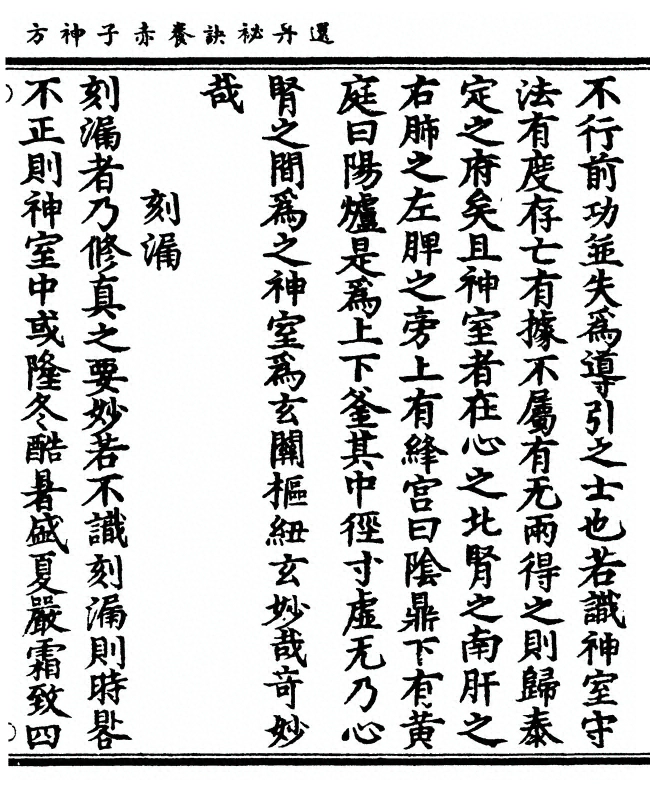 還丹祕訣養赤子神方
不行前功並失爲導引之士也若識神室守
法有度存亡有據不屬有无兩得之則歸泰
定之府矣且神室者在心之北腎之南肝之
右肺之左脾之旁上有絳宮曰陰鼎下有黃
庭曰陽爐是爲上下釜其中徑寸虛无乃心
腎之間爲之神室爲玄關樞紐玄妙哉奇妙
哉
刻漏
刻漏者乃修真之要妙若不識刻漏則時晷
不正則神室中或隆冬酷暑盛夏嚴霜致四